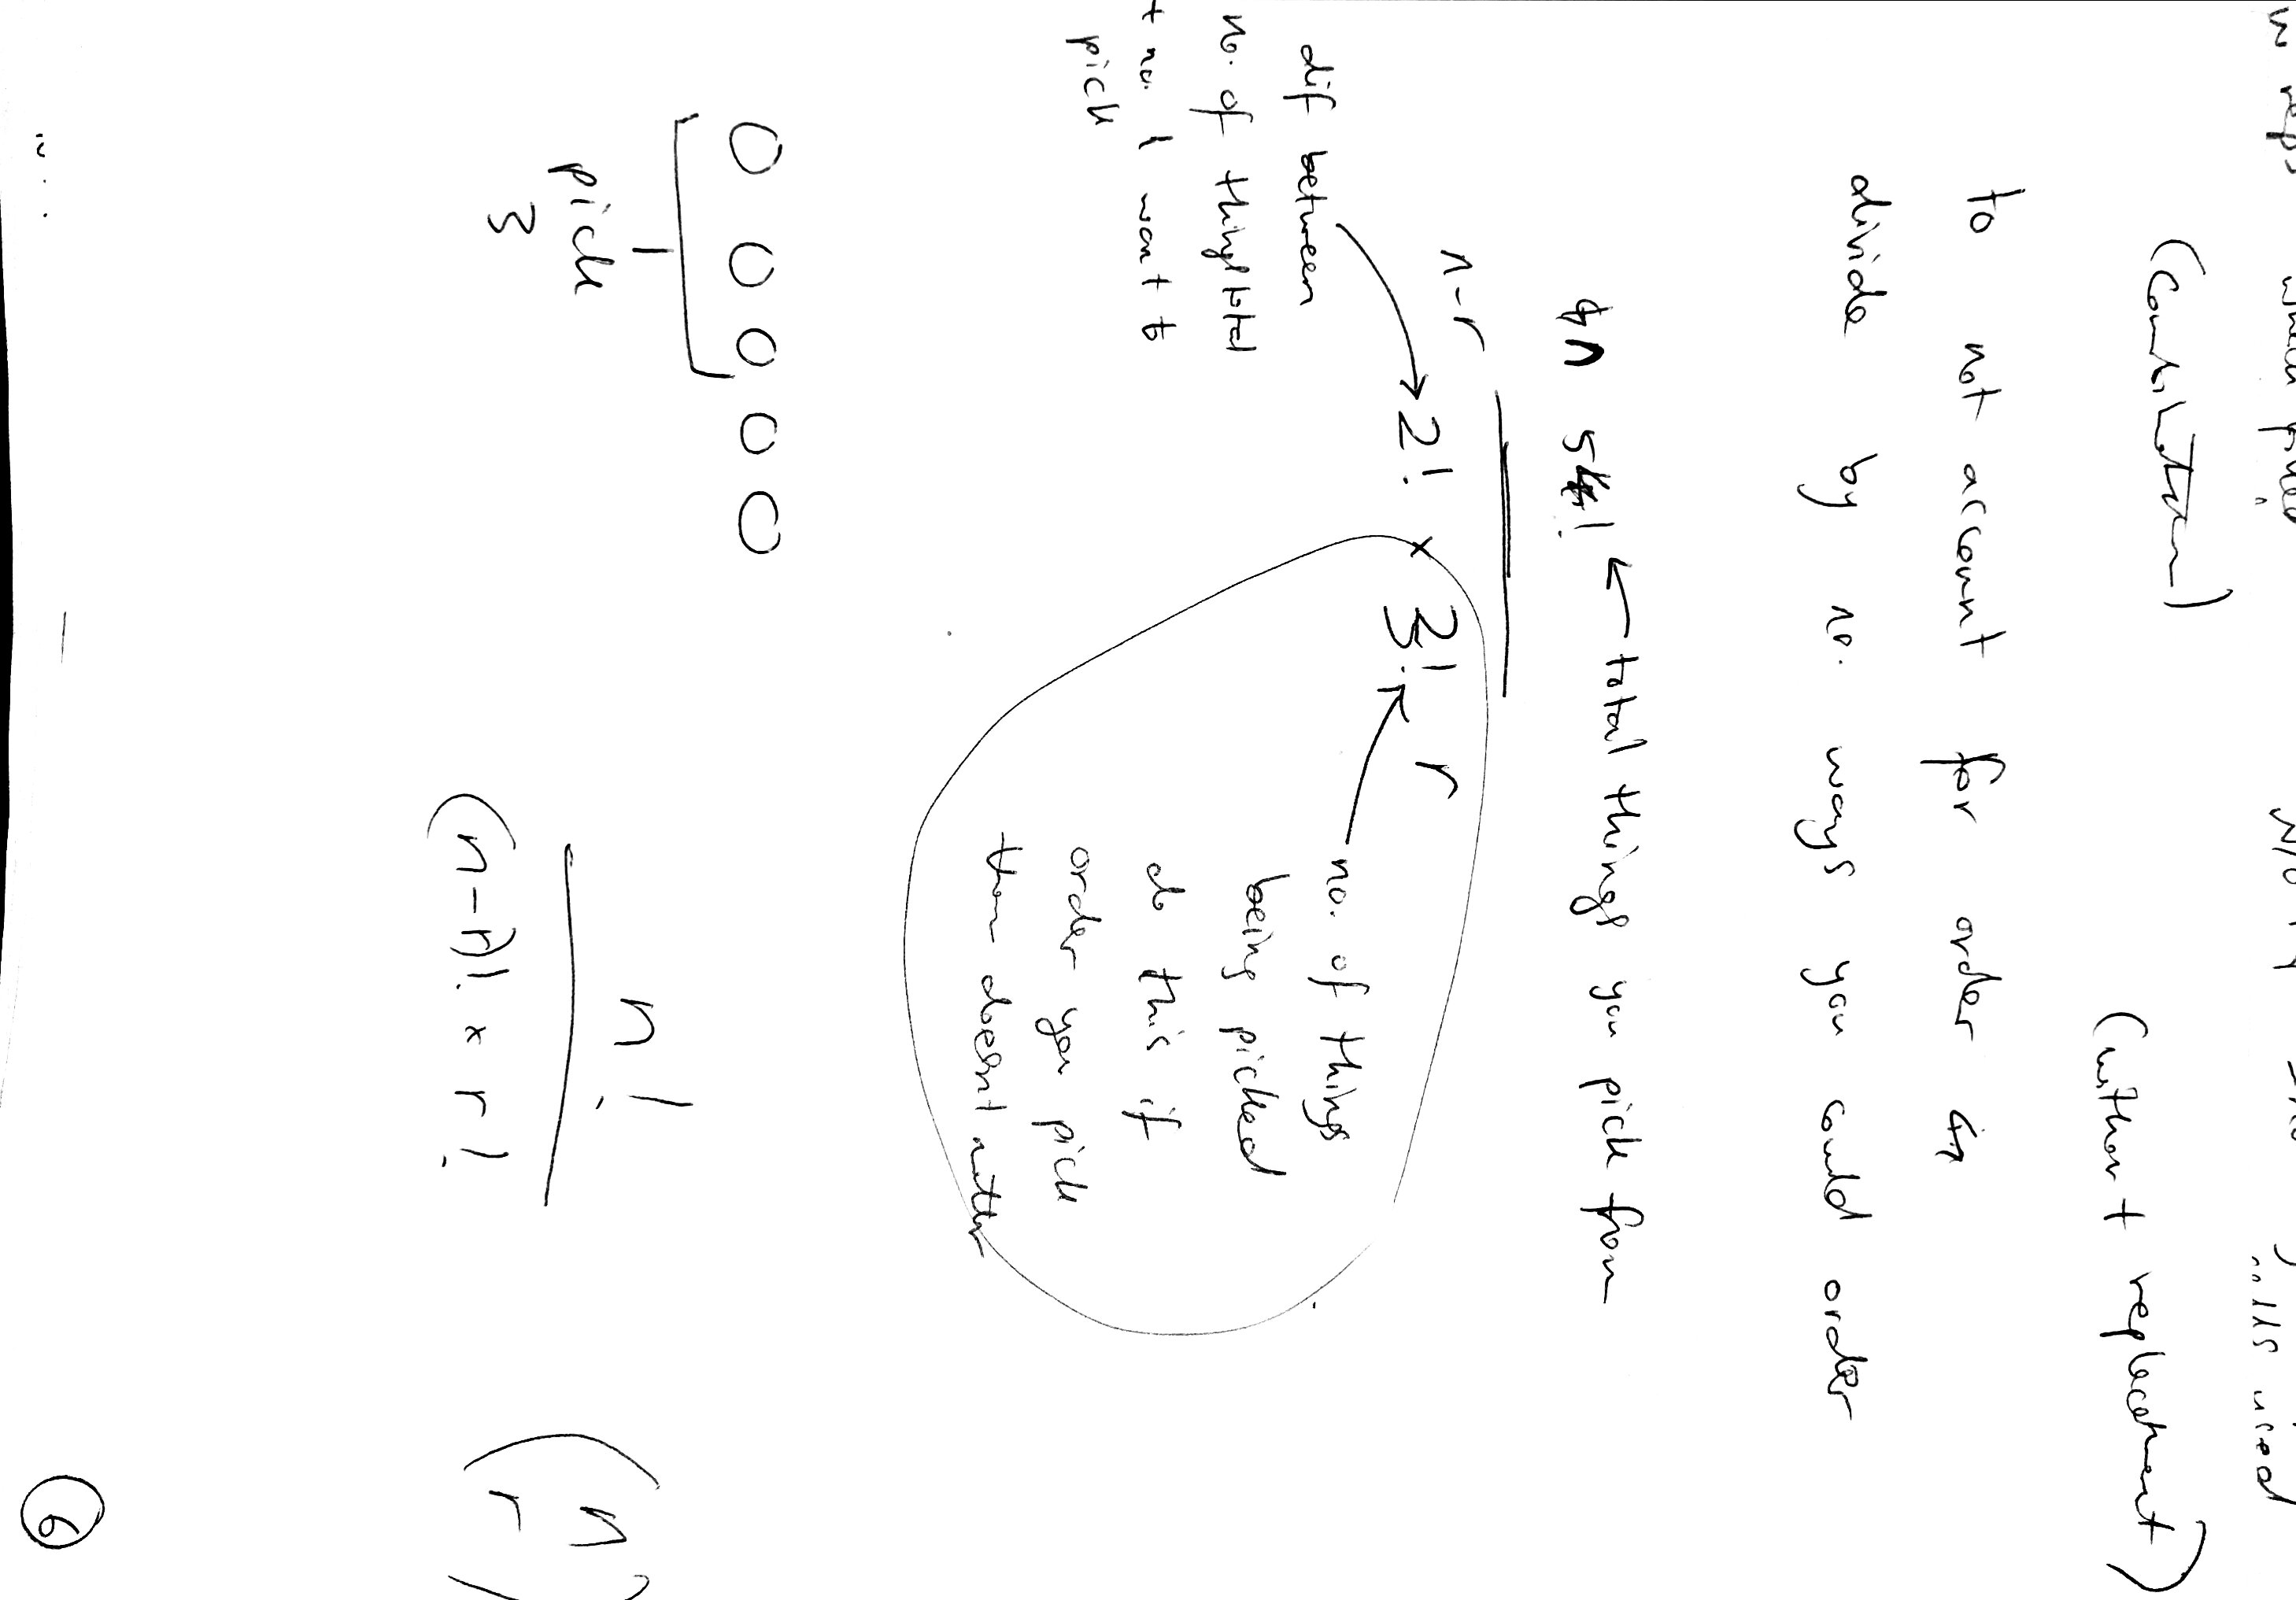 w reps when
(Combination) (without replacement)
to not account for order
divide by no. ways you could order
n 5! ← total things you pick from
n-r 2! × 3! r
dif between
no. of things total
+ no. I want to
pick
no. of things
being picked
do this if
order you pick
them doesn't matter
O O O O O
pick
3
n!
(n-r)! × r!
(n
r)
6